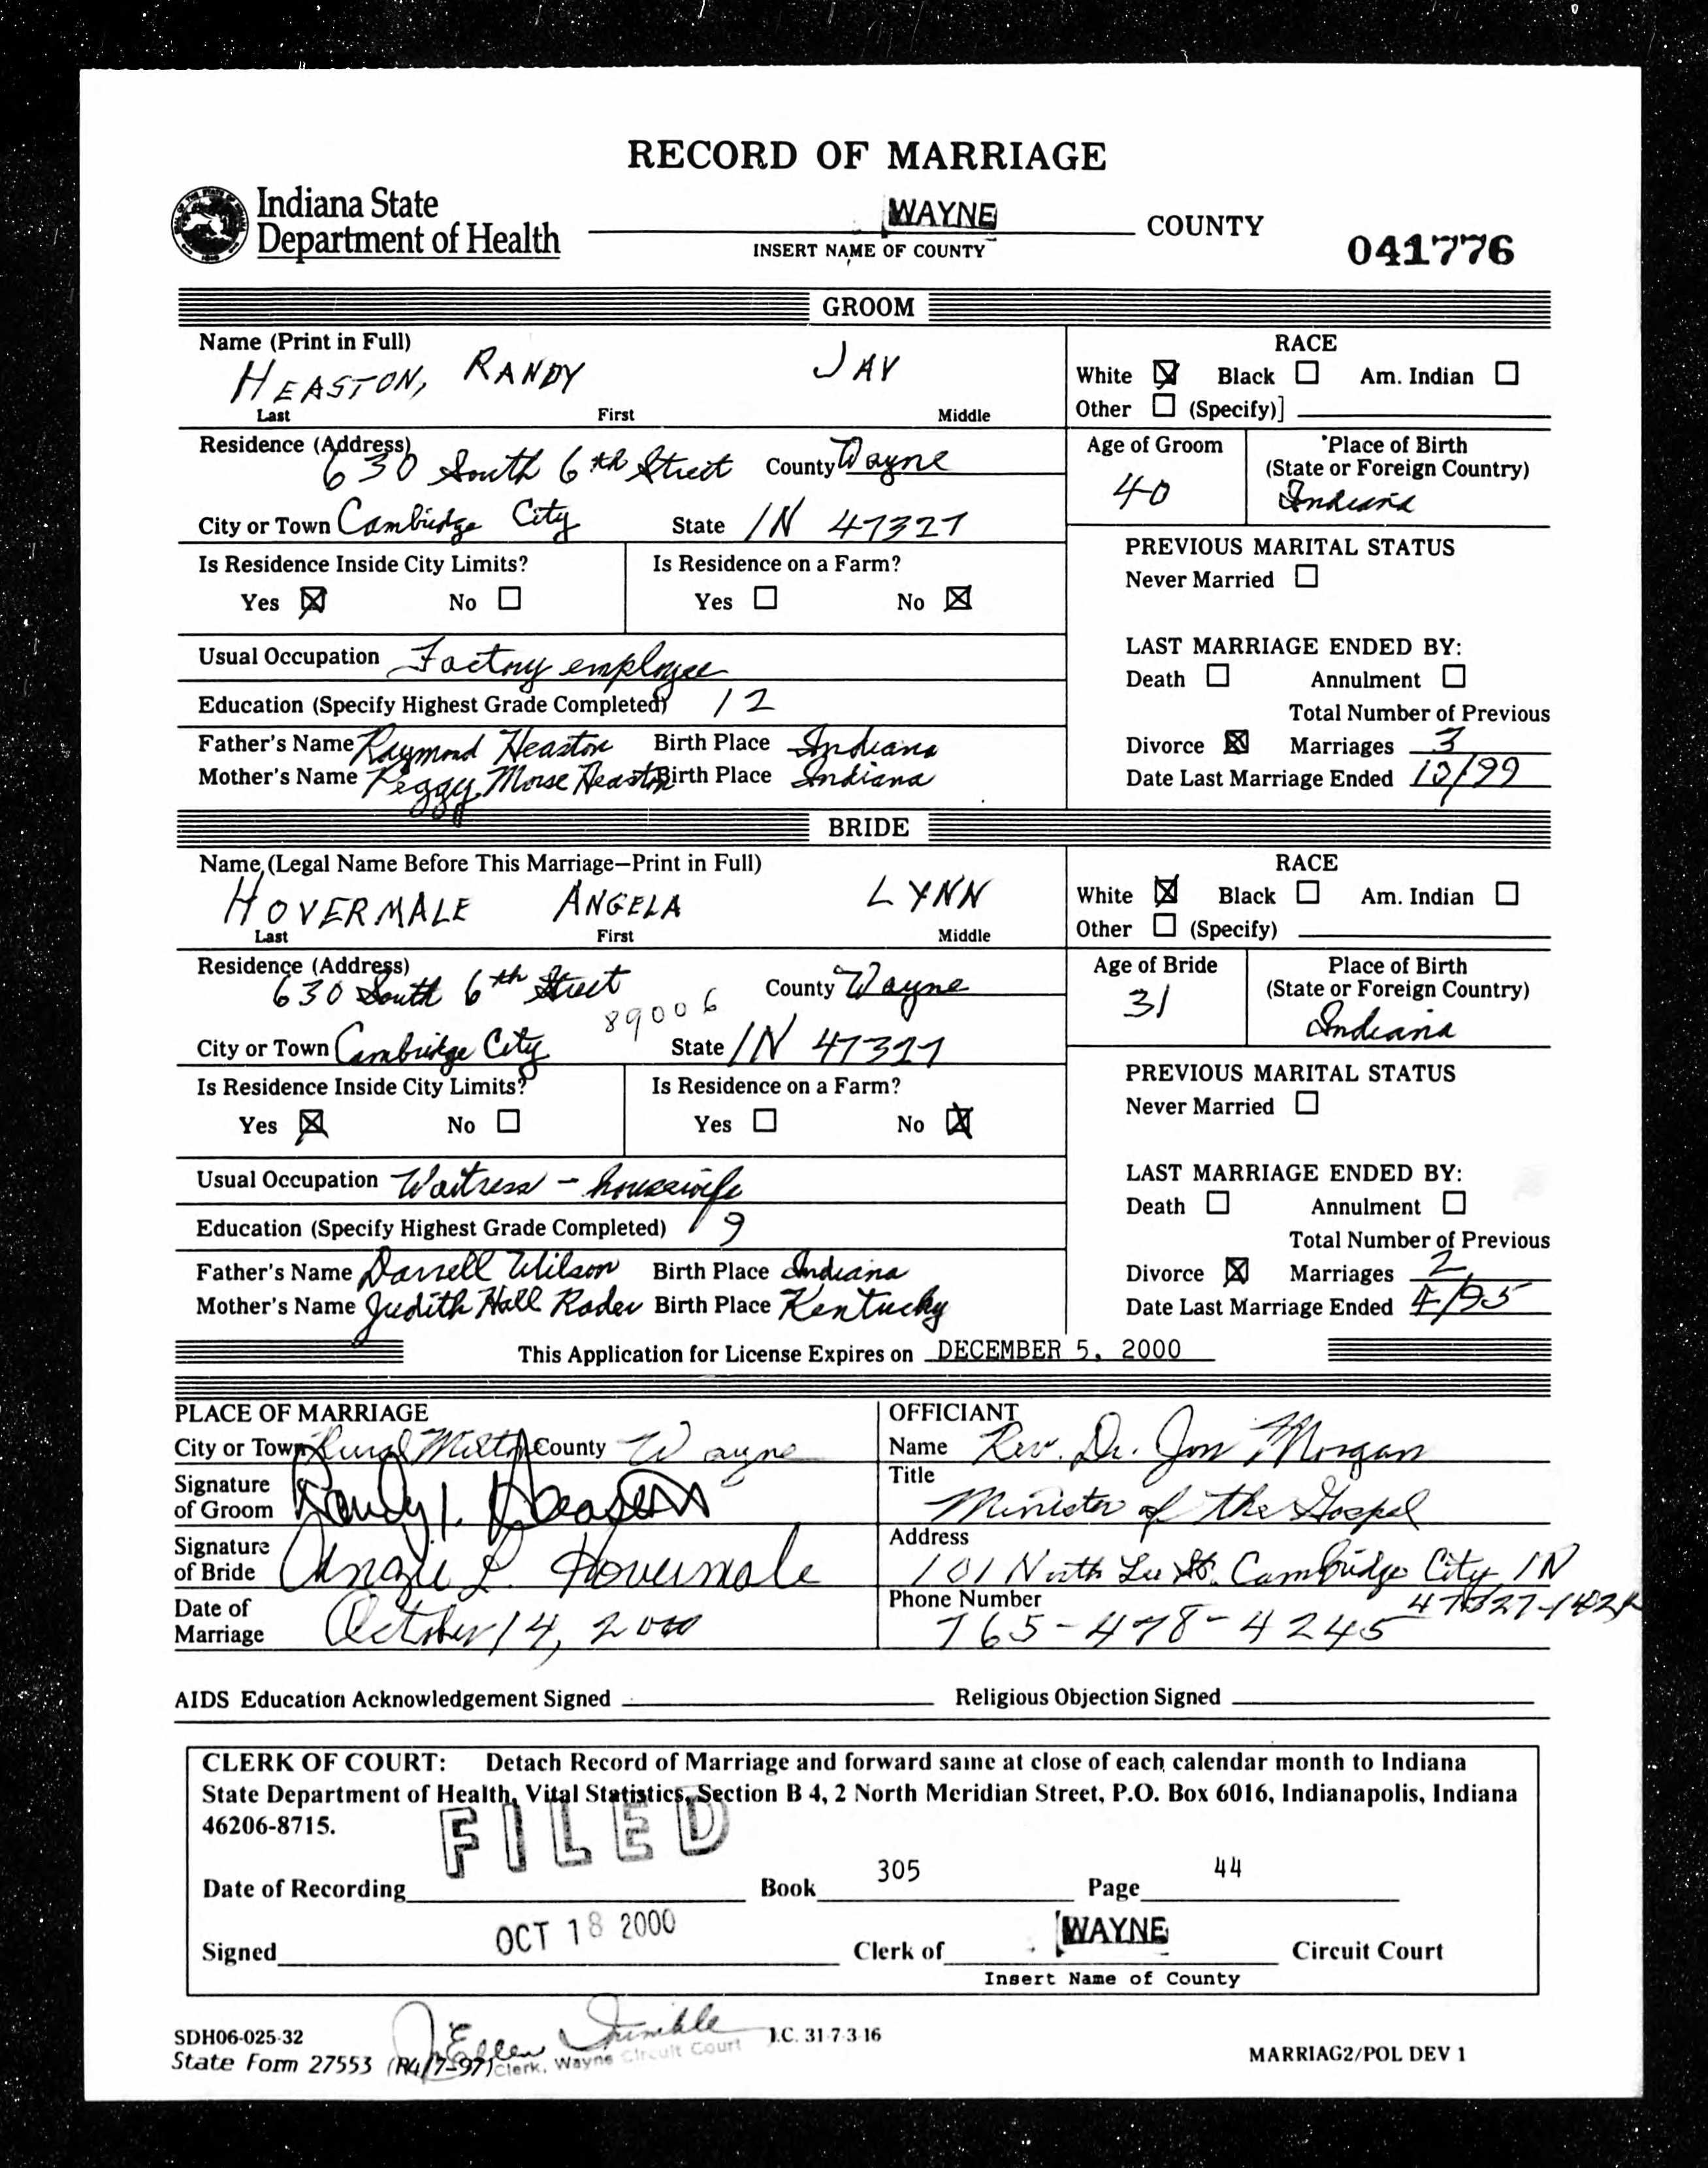 RECORD OF MARRIAGE
Indiana State
Department of Health
WAYNE COUNTY
INSERT NAME OF COUNTY
041776
GROOM
Name (Print in Full)
HEASTON, RANDY JAY
Last First Middle
RACE
White ☒ Black ☐ Am. Indian ☐
Other ☐ (Specify)]
Residence (Address) 630 South 6th Street County Wayne
City or Town Cambridge City State IN 47327
Age of Groom
40
Place of Birth
(State or Foreign Country)
Indiana
Is Residence Inside City Limits?
Yes ☒ No ☐
Is Residence on a Farm?
Yes ☐ No ☒
PREVIOUS MARITAL STATUS
Never Married ☐
Usual Occupation Factory employee
Education (Specify Highest Grade Completed) 12
Father's Name Raymond Heaston Birth Place Indiana
Mother's Name Peggy Morse Heaston Birth Place Indiana
LAST MARRIAGE ENDED BY:
Death ☐ Annulment ☐
Total Number of Previous
Divorce ☒ Marriages 3
Date Last Marriage Ended 10/99
BRIDE
Name (Legal Name Before This Marriage–Print in Full)
HOVERMALE ANGELA LYNN
Last First Middle
RACE
White ☒ Black ☐ Am. Indian ☐
Other ☐ (Specify)
Residence (Address) 630 South 6th Street County Wayne
89006
City or Town Cambridge City State IN 47327
Age of Bride
31
Place of Birth
(State or Foreign Country)
Indiana
Is Residence Inside City Limits?
Yes ☒ No ☐
Is Residence on a Farm?
Yes ☐ No ☒
PREVIOUS MARITAL STATUS
Never Married ☐
Usual Occupation Waitress - housewife
Education (Specify Highest Grade Completed) 9
Father's Name Darrell Wilson Birth Place Indiana
Mother's Name Judith Hall Rader Birth Place Kentucky
LAST MARRIAGE ENDED BY:
Death ☐ Annulment ☐
Total Number of Previous
Divorce ☒ Marriages 2
Date Last Marriage Ended 4/95
This Application for License Expires on DECEMBER 5, 2000
PLACE OF MARRIAGE
City or Town Rural Milton County Wayne
Signature
of Groom Randy J. Heaston
Signature
of Bride Angie L. Hovermale
Date of
Marriage October 14, 2000
OFFICIANT
Name Rev. Dr. Jon Morgan
Title
Minister of the Gospel
Address
101 North Lee St. Cambridge City IN
Phone Number 47327-1424
765-478-4245
AIDS Education Acknowledgement Signed Religious Objection Signed
CLERK OF COURT: Detach Record of Marriage and forward same at close of each calendar month to Indiana
State Department of Health, Vital Statistics, Section B 4, 2 North Meridian Street, P.O. Box 6016, Indianapolis, Indiana
46206-8715.
FILED
Date of Recording Book 305 Page 44
OCT 18 2000
Signed Clerk of WAYNE Circuit Court
Insert Name of County
SDH06-025-32
State Form 27553 (R4/7-97)
Jo Ellen Trimble
Clerk, Wayne Circuit Court
I.C. 31-7-3-16
MARRIAG2/POL DEV 1